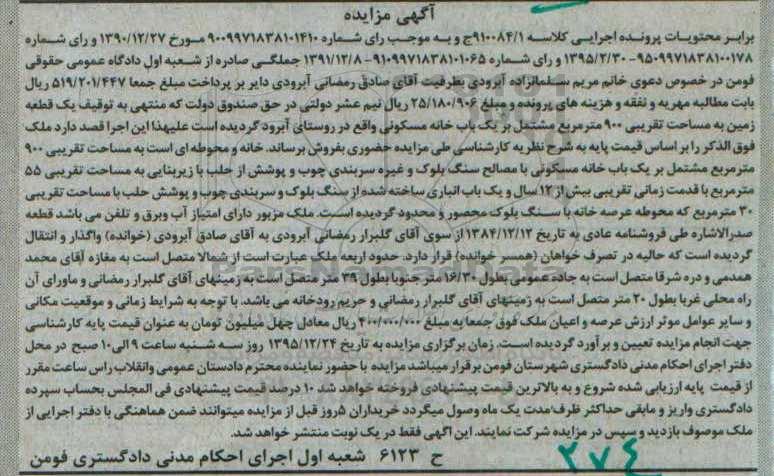 آگهی مزایده
برابر محتویات پرونده اجرایی کلاسه ۹۱۰۰۸۴/۱ج و به موجب رای شماره ۹۰۰۹۹۷۱۸۳۸۱۰۱۴۱۰ مورخ ۱۳۹۰/۱۲/۲۷ و رای شماره
۹۵۰۹۹۷۱۸۳۸۱۰۰۱۷۸-۱۳۹۵/۲/۳۰ و رای شماره ۹۱۰۹۹۷۱۸۳۸۱۰۱۰۶۵-۱۳۹۱/۱۲/۸ جملگی صادره از شعبه اول دادگاه عمومی حقوقی
فومن در خصوص دعوی خانم مریم سلمانزاده آبرودی بطرفیت آقای صادق رمضانی آبرودی دایر بر پرداخت مبلغ جمعا ۵۱۹/۲۰۱/۴۴۷ ریال
بابت مطالبه مهریه و نفقه و هزینه های پرونده و مبلغ ۲۵/۱۸۰/۹۰۶ ریال نیم عشر دولتی در حق صندوق دولت که منتهی به توقیف یک قطعه
زمین به مساحت تقریبی ۹۰۰ مترمربع مشتمل بر یک باب خانه مسکونی واقع در روستای آبرود گردیده است علیهذا این اجرا قصد دارد ملک
فوق الذکر را بر اساس قیمت پایه به شرح نظریه کارشناسی طی مزایده حضوری بفروش برساند. خانه و محوطه ای است به مساحت تقریبی ۹۰۰
مترمربع مشتمل بر یک باب خانه مسکونی با مصالح سنگ بلوک و غیره سربندی چوب و پوشش از حلب با زیربنایی به مساحت تقریبی ۵۵
مترمربع با قدمت زمانی تقریبی بیش از ۱۲ سال و یک باب انباری ساخته شده از سنگ بلوک و سربندی چوب و پوشش حلب با مساحت تقریبی
۳۰ مترمربع که محوطه عرصه خانه با سنگ بلوک محصور و محدود گردیده است. ملک مزبور دارای امتیاز آب وبرق و تلفن می باشد قطعه
صدرالاشاره طی فروشنامه عادی به تاریخ ۱۳۸۴/۱۲/۱۲ از سوی آقای گلبرار رمضانی آبرودی به آقای صادق آبرودی (خوانده) واگذار و انتقال
گردیده است که حالیه در تصرف خواهان (همسر خوانده) قرار دارد. حدود اربعه ملک عبارت است از شمالا متصل است به مغازه آقای محمد
همدمی و دره شرقا متصل است به جاده عمومی بطول ۱۶/۳۰ متر جنوبا بطول ۴۹ متر متصل است به زمینهای آقای گلبرار رمضانی و ماورای آن
راه محلی غربا بطول ۲۰ متر متصل است به زمینهای آقای گلبرار رمضانی و حریم رودخانه می باشد. با توجه به شرایط زمانی و موقعیت مکانی
و سایر عوامل موثر ارزش عرصه و اعیان ملک فوق جمعا به مبلغ ۴۰۰/۰۰۰/۰۰۰ ریال معادل چهل میلیون تومان به عنوان قیمت پایه کارشناسی
جهت انجام مزایده تعیین و برآورد گردیده است. زمان برگزاری مزایده به تاریخ ۱۳۹۵/۱۲/۲۴ روز سه شنبه ساعت ۹ الی ۱۰ صبح در محل
دفتر اجرای احکام مدنی دادگستری شهرستان فومن برقرار میباشد مزایده با حضور نماینده محترم دادستان عمومی وانقلاب راس ساعت مقرر
از قیمت پایه ارزیابی شده شروع و به بالاترین قیمت پیشنهادی فروخته خواهد شد ۱۰ درصد قیمت پیشنهادی فی المجلس بحساب سپرده
دادگستری واریز و مابقی حداکثر ظرف مدت یک ماه وصول میگردد خریداران ۵روز قبل از مزایده میتوانند ضمن هماهنگی با دفتر اجرایی از
ملک موصوف بازدید و سپس در مزایده شرکت نمایند. این آگهی فقط در یک نوبت منتشر خواهد شد.
ح ۶۱۲۳ شعبه اول اجرای احکام مدنی دادگستری فومن
۲۷۴